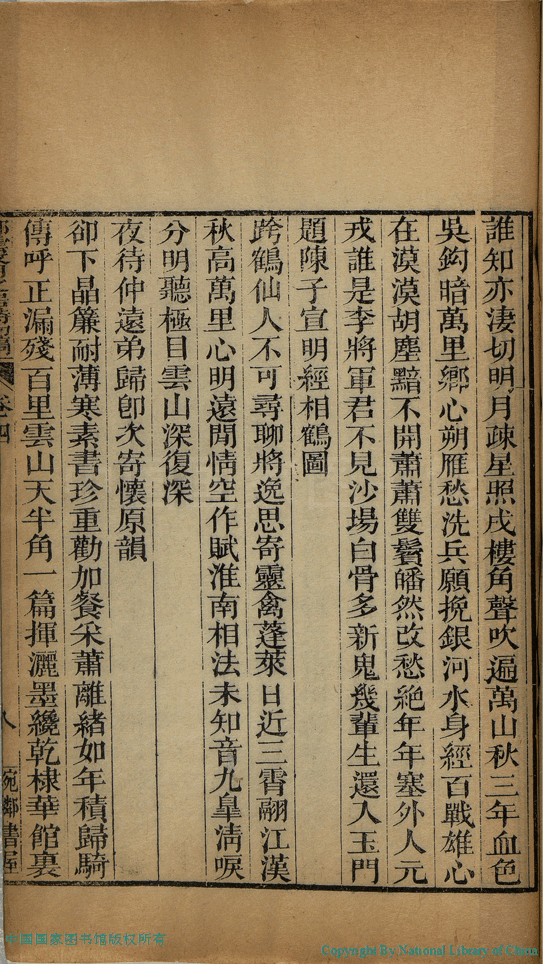 誰知亦淒切明月疎星照戍樓角聲吹遍萬山秋三年血色
吳鉤暗萬里鄉心朔雁愁洗兵願挽銀河水身經百戰雄心
在漠漠胡塵黯不開蕭蕭雙鬢皤然改愁絕年年塞外人元
戎誰是李將軍君不見沙場白骨多新鬼幾輩生還入玉門
題陳子宣明經相鶴圖
跨鶴仙人不可尋聊將逸思寄靈禽蓬萊日近三霄翮江漢
秋高萬里心明遠閒情空作賦淮南相法未知音九皐淸唳
分明聽極目雲山深復深
夜待仲遠弟歸卽次寄懷原韻
卻下晶簾耐薄寒素書珍重勸加餐采蕭離緒如年積歸騎
傳呼正漏殘百里雲山天半角一篇揮灑墨纔乾棣華館裏
卷四
八
宛鄰書屋
中国国家图书馆版权所有
Copyright By National Library of China